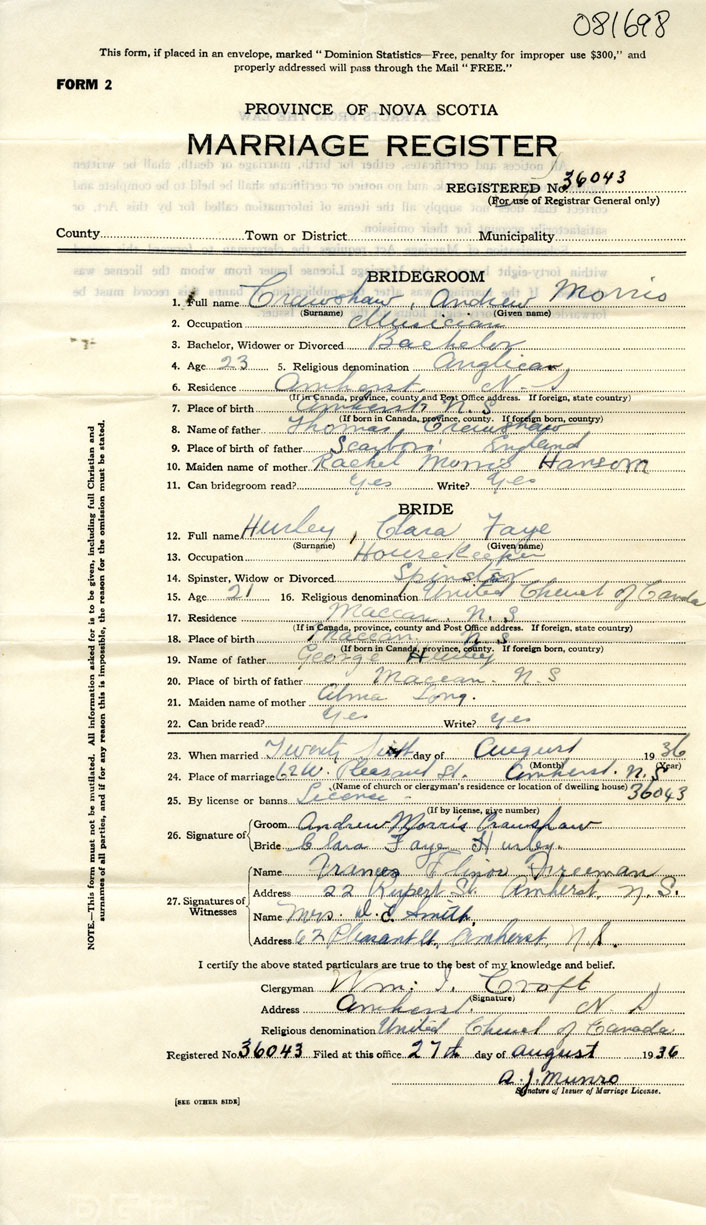 081698
This form, if placed in an envelope, marked "Dominion Statistics—Free, penalty for improper use $300," and
properly addressed will pass through the Mail "FREE."
FORM 2
PROVINCE OF NOVA SCOTIA
MARRIAGE REGISTER
REGISTERED No. 36043
(For use of Registrar General only)
County Town or District Municipality
BRIDEGROOM
1. Full name Crawshaw, Andrew Morris
(Surname) (Given name)
2. Occupation Musician
3. Bachelor, Widower or Divorced Bachelor
4. Age 23 5. Religious denomination Anglican
6. Residence Amherst, N. S
(If in Canada, province, county and Post Office address. If foreign, state country)
7. Place of birth Amherst N. S
(If born in Canada, province, county. If foreign born, country)
8. Name of father Thomas Crawshaw
9. Place of father England
10. Maiden name of mother Rachel Morris Hansom
11. Can bridegroom read? Yes Write? Yes
BRIDE
12. Full name Hurley, Clara Faye
(Surname) (Given name)
13. Occupation Housekeeper
14. Spinster, Widow or Divorced Spinster
15. Age 21 16. Religious denomination United Church of Canada
17. Residence Maccan, N. S
(If in Canada, province, county and Post Office address. If foreign, state country)
18. Place of birth Maccan N S
(If born in Canada, province, county. If foreign born, country)
19. Name of father George Hurley
20. Place of birth of father Maccan. N. S
21. Maiden name of mother Alma Long.
22. Can bride read? Yes Write? Yes
23. When married Twenty Sixth day of August 1936
(Month) (Year)
24. Place of marriage 62 W. Pleasant St. Amherst. N. S.
(Name of church or clergyman's residence or location of dwelling house) 36043
25. By license or banns License
(If by license, give number)
26. Signature of Groom Andrew Morris Crawshaw
Bride Clara Faye Hurley.
27. Signatures of Witnesses
Name Frances Elinor Freeman
Address 22 Rupert St. Amherst, N. S.
Name Mrs. D. E. Smith,
Address 62 Pleasant St, Amherst, N. S.
I certify the above stated particulars are true to the best of my knowledge and belief.
Clergyman Wm. I. Croft
(Signature)
Address Amherst N S
Religious denomination United Church of Canada.
Registered No. 36043 Filed at this office 27th day of August 1936
A. J. Munro
Signature of Issuer of Marriage License.
[SEE OTHER SIDE]
NOTE.—This form must not be mutilated. All information asked for is to be given, including full Christian and
surnames of all parties, and if for any reason this is impossible, the reason for the omission must be stated.